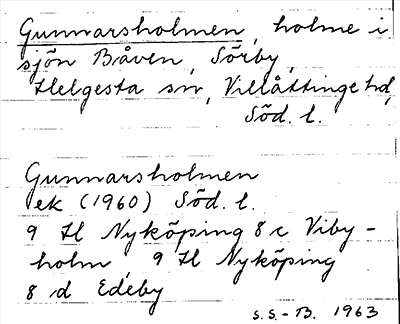 Gunnarsholmen, holme i
sjön Båven, Sörby,
Helgesta sn, Villåttinge hd,
Söd. l.
Gunnarsholmen
ek (1960) Söd. l.
9 H Nyköping 8 c Viby-
holm, 9 H Nyköping
8 d Edeby
S.S.-B. 1963